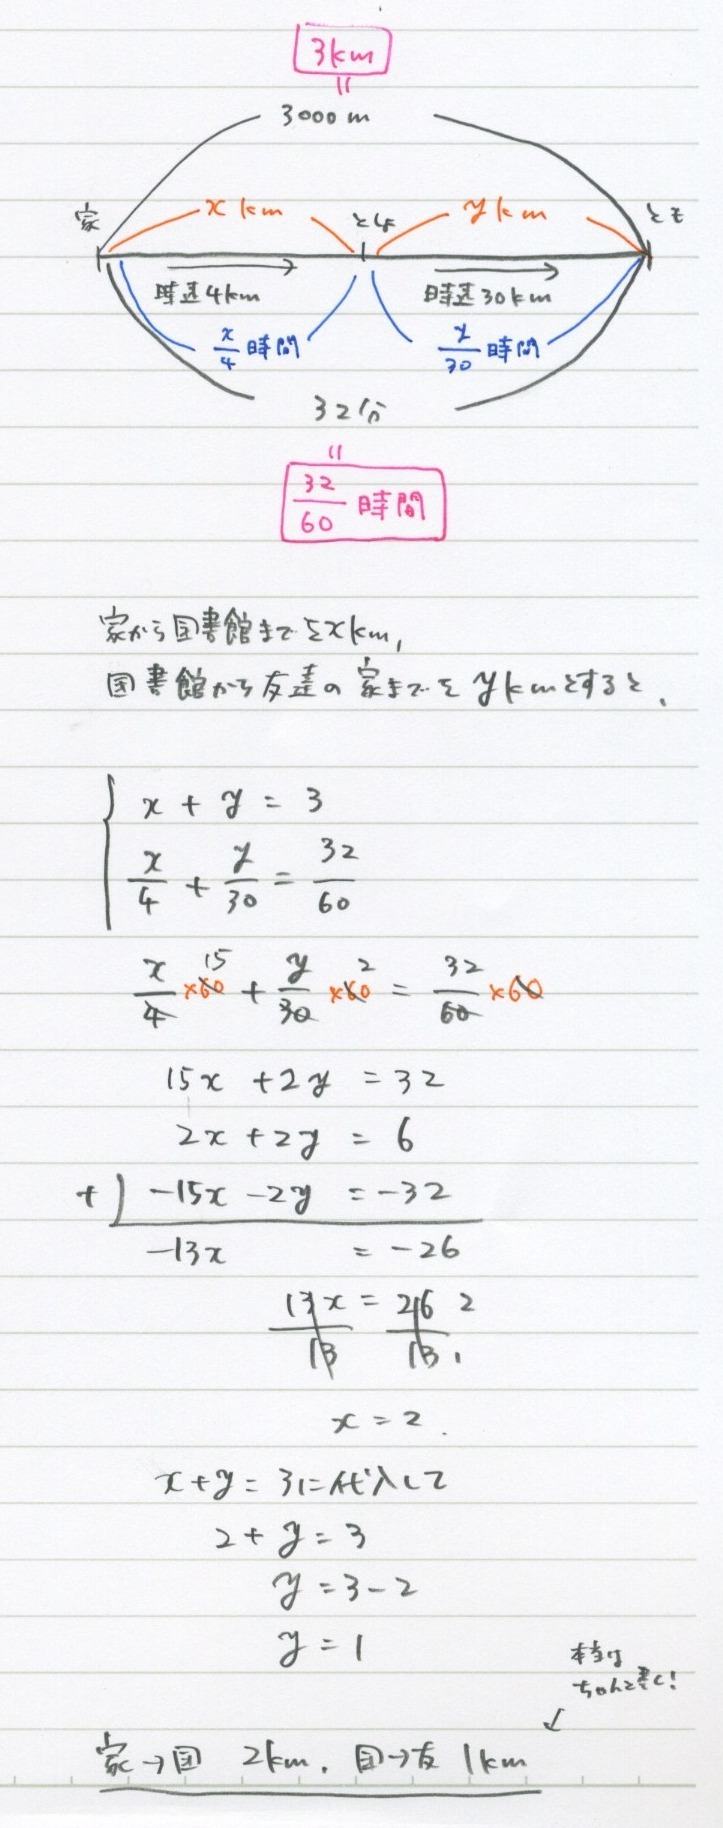 3km
=
3000m
家 xkm とし ykm とも
時速4km 時速30km
x/4時間 y/30時間
32分
=
32/60 時間
家から図書館までをxkm,
図書館から友達の家までをykmとすると、
x + y = 3
x/4 + y/30 = 32/60
x/4 ×60 15 + y/30 ×60 2 = 32/60 ×60
15x + 2y = 32
2x + 2y = 6
+) -15x -2y = -32
-13x = -26
13x/13 = 26/13 2 1
x = 2.
x+y=3に代入して
2 + y = 3
y = 3-2
y = 1
本当は
ちゃんと書く!
↓
家→図 2km. 図→友 1km